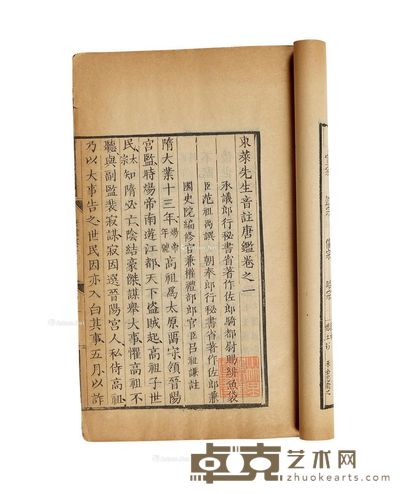 東萊先生音註唐鑑卷之一
承議郎行祕書省著作佐郎騎都尉賜緋魚袋
臣范祖禹譔 朝奉郎行祕書省著作佐郎兼
國史院編修官兼權禮部郎官臣呂祖謙註
隋大業十三年煬帝年號高祖爲太原留守領晉陽
宮監時煬帝南遊江都天下盜賊起高祖子世
民太宗知隋必亡陰結豪傑謀舉大事懼高祖不
聽與副監裴寂謀寂因選晉陽宮人私侍高祖
乃以大事告之世民因亦入白其事五月以詐
卓克艺术网
www.zhuokearts.com